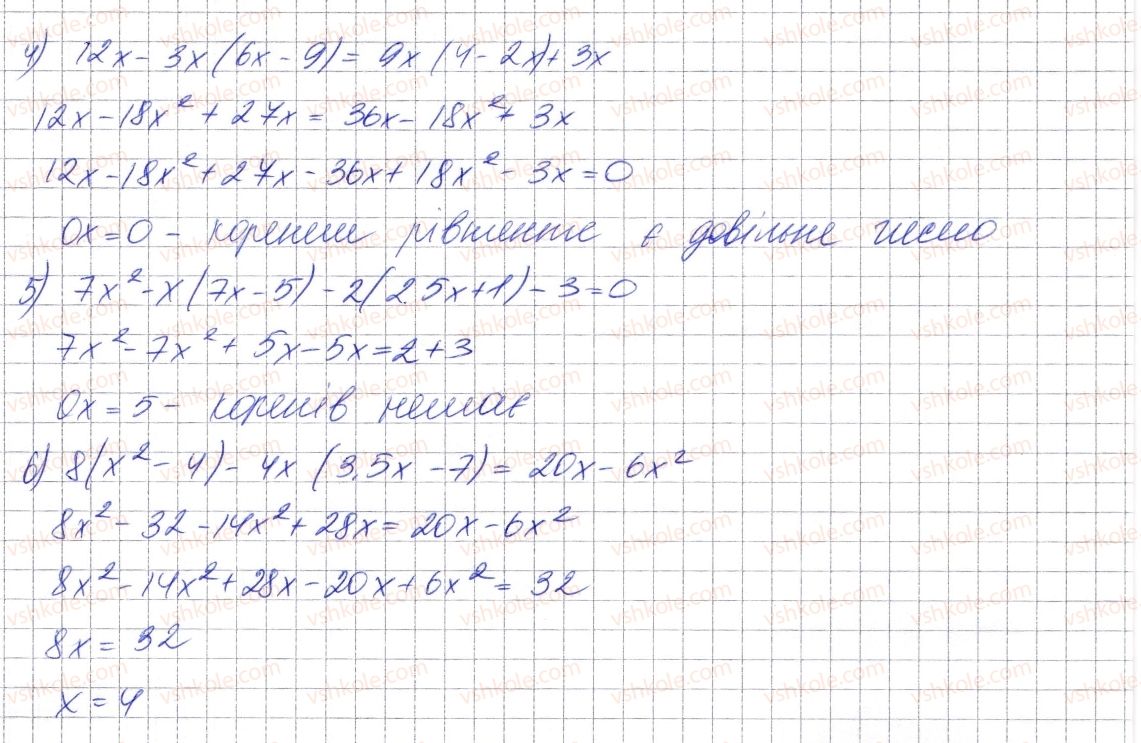 4) 12x - 3x(6x - 9) = 9x(4 - 2x) + 3x
12x - 18x² + 27x = 36x - 18x² + 3x
12x - 18x² + 27x - 36x + 18x² - 3x = 0
0x = 0 - коренем рівняння є довільне число
5) 7x² - x(7x - 5) - 2(2.5x + 1) - 3 = 0
7x² - 7x² + 5x - 5x = 2 + 3
0x = 5 - коренів немає
6) 8(x² - 4) - 4x(3.5x - 7) = 20x - 6x²
8x² - 32 - 14x² + 28x = 20x - 6x²
8x² - 14x² + 28x - 20x + 6x² = 32
8x = 32
x = 4